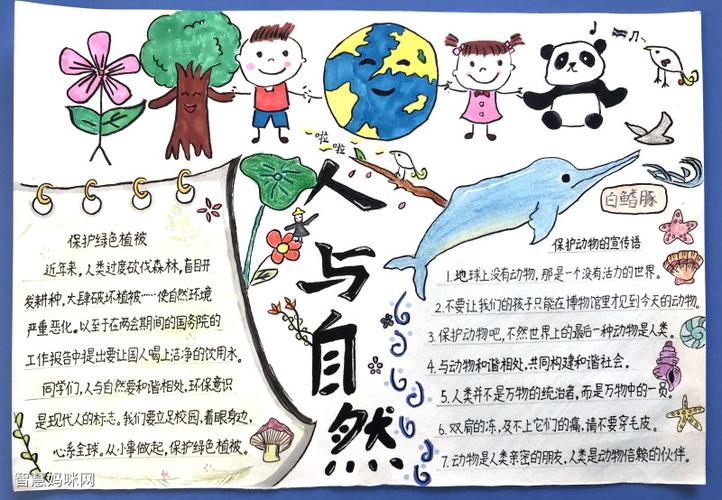 啦
啦
人与自然
白鳍豚
保护绿色植被
近年来，人类过度砍伐森林，盲目开
发耕种，大肆破坏植被……使自然环境
严重恶化。以至于在两会期间的国务院的
工作报告中提出要让国人喝上洁净的饮用水。
同学们，人与自然爱和谐相处，环保意识
是现代人的标志。我们要立足校园，着眼身边，
心系全球。从小事做起，保护绿色植被。
保护动物的宣传语
1.地球上没有动物，那是一个没有活力的世界。
2.不要让我们的孩子只能在博物馆里才见到今天的动物。
3.保护动物吧，不然世界上的最后一种动物是人类。
4.与动物和谐相处，共同构建和谐社会。
5.人类并不是万物的统治者，而是万物中的一员。
6.双肩的冻，及不上它们的痛，请不要穿毛皮。
7.动物是人类亲密的朋友，人类是动物信赖的伙伴。
智慧妈咪网